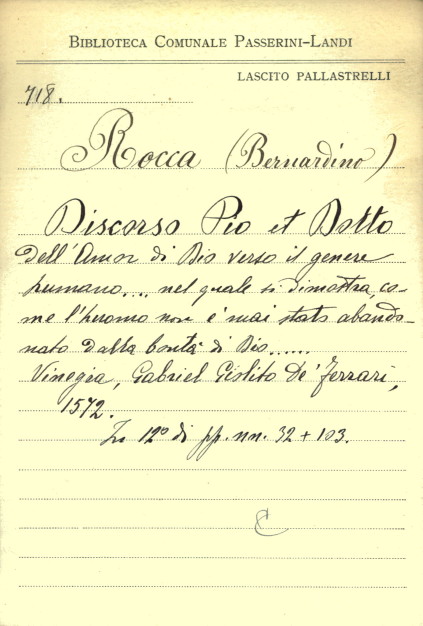 BIBLIOTECA COMUNALE PASSERINI-LANDI
LASCITO PALLASTRELLI
718.
Rocca (Bernardino)
Discorso Pio et Dotto
Dell'Amor di Dio verso il genere
humano.... nel quale si dimostra, co-
me l'huomo non è mai stato abando-
nato dalla bontà di Dio......
Vinegia, Gabriel Giolito De' Ferrari,
1572.
In 12º di pp. nn. 32 + 103.
C